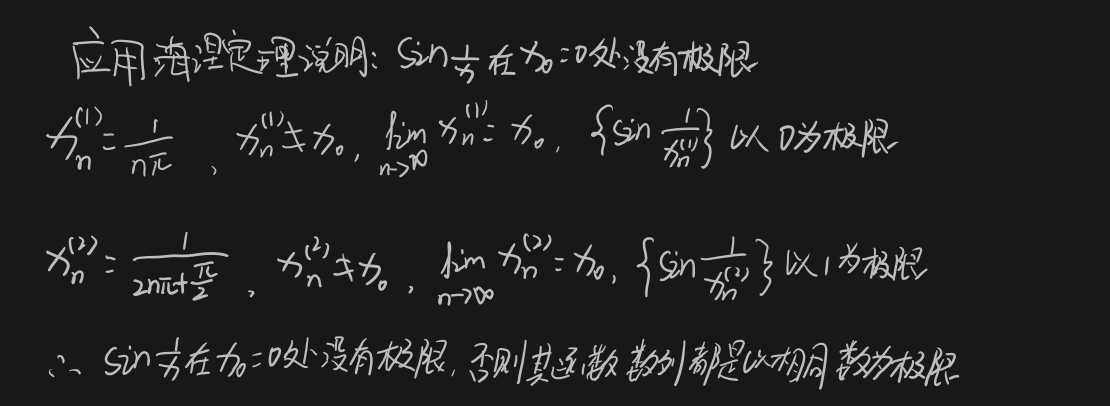 应用海涅定理说明: sin 1/x 在 x₀=0处没有极限
xₙ⁽¹⁾ = 1/(nπ) , xₙ⁽¹⁾ ≠ x₀, lim n→∞ xₙ⁽¹⁾ = x₀, {sin 1/xₙ⁽¹⁾} 以 0为极限
xₙ⁽²⁾ = 1/(2nπ+π/2) , xₙ⁽²⁾ ≠ x₀ , lim n→∞ xₙ⁽²⁾ = x₀, {sin 1/xₙ⁽²⁾} 以 1为极限
∴ sin 1/x 在 x₀=0处没有极限, 否则其函数数列都是以相同数为极限